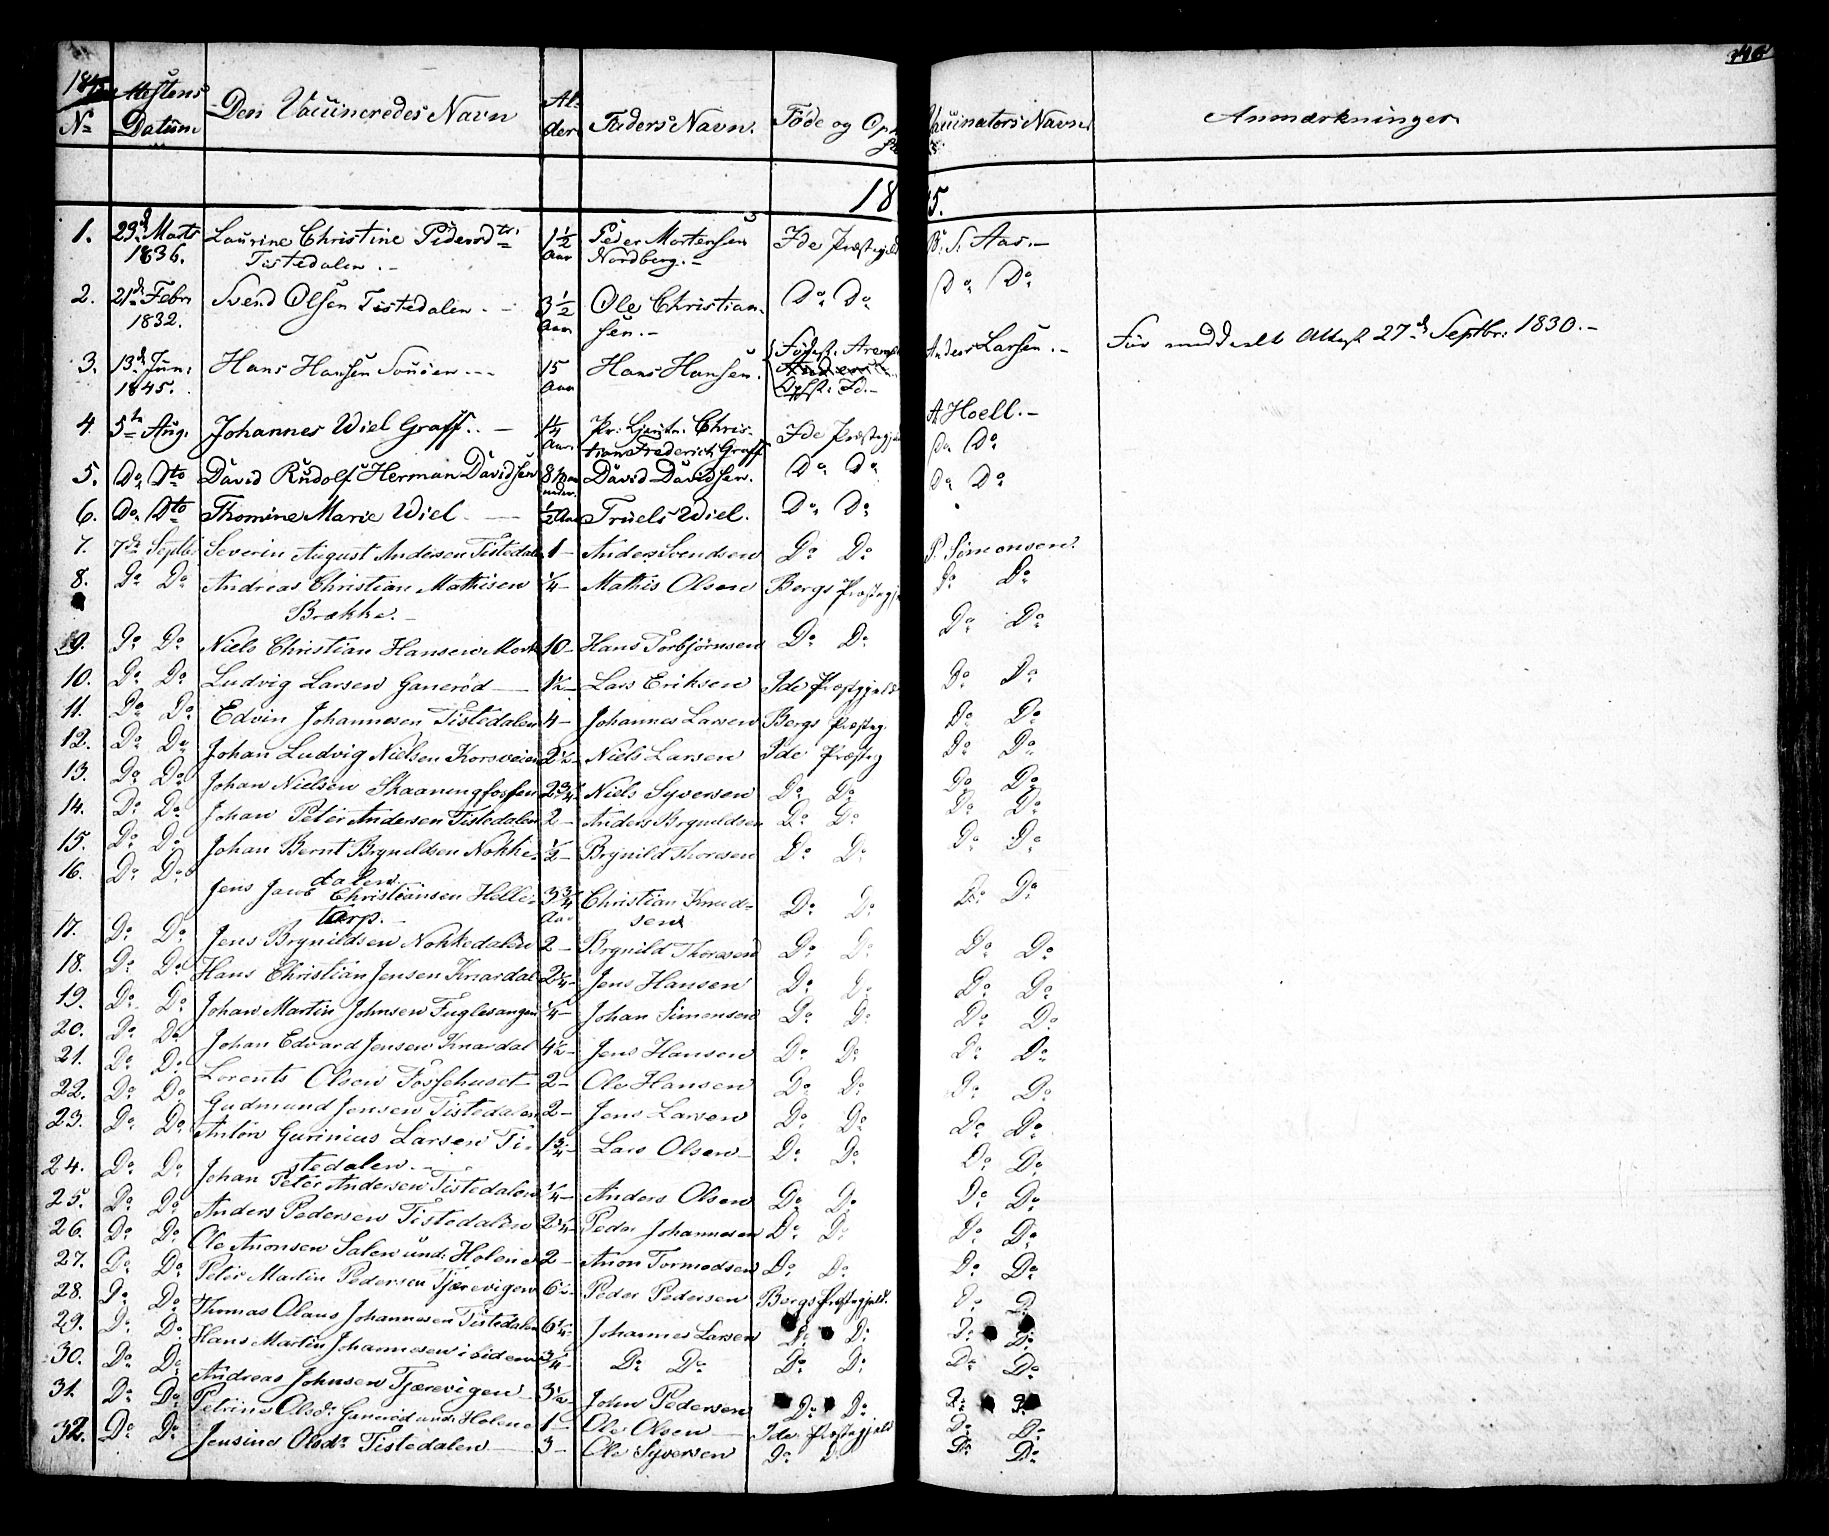 346
1845
No Attestens Datum Den Vaccineredes Navn Alder Faders Navn. Føde og Op Vaccinators Navn Anmærkninger
1845.
1. 23d Marts 1836. Laurine Christine Pedersdtr Tistedalen. 1 1/2 Aar Peder Mortensen Nordberg. Ide Præstegjeld B. S. Aas.
2. 21d Febr 1832. Svend Olsen Tistedalen. 3 1/2 Aar Ole Christiansen. Do Do Do Do
3. 13d Jun: 1845. Hans Hansen 15 Aar Hans Hansen. Fødest. Opfst. Id. Anders Larsen. Før meddeelt Attest 27d Septbr: 1830.
4. 5te Aug. Johannes Wiel Graff. 1 1/4 Aar Pr: Christian Frederich Graff Ide Præstegjeld A Hoell.
5. Do Dto David Rudolf Herman Davidsen 8 Maaneder. David Davidsen. Do Do Do Do
6. Do Dto Thomine Marie Wiel. 1/2 Aar Truels Wiel. Do Do Do Do
7. 7de Septbr Severin August Andersen Tistedalen 1 Anders Svendsen Do Do P. Simonsen.
8. Do Do Andreas Christian Mathisen Brække. 1/4 Mathis Olsen Bergs Præstegj Do Do
9. Do Do Niels Christian Hansen Mork 10 Hans Torbjørnsen Do Do Do Do
10. Do Do Ludvig Larsen Ganerød 1 1/2 Lars Eriksen Ide Præstegjeld Do Do
11. Do Do Edvin Johannesen Tistedalen 4 Johannes Larsen Bergs Præsteg Do Do
12. Do Do Johan Ludvig Nielsen Korsveien 2 1/2 Niels Larsen Ide Præsteg Do Do
13. Do Do Johan Nielsen Skaaningfossen 2 3/4 Niels Syversen Do Do Do Do
14. Do Do Johan Peter Andersen Tistedalen 2 Anders Brynildsen Do Do Do Do
15. Do Do Johan Bernt Brynildsen Nokkedalen. 1/2 Brynild Thoresen Do Do Do Do
16. Do Do Jens Jacob Christiansen Helletorp. 3 3/4 Aar Christian Knudsen Do Do Do Do
17. Do Do Jens Brynildsen Nokkedalen 2 Brynild Thoresen Do Do Do Do
18. Do Do Hans Christian Jensen Knardal 2 1/4 Jens Hansen Do Do Do Do
19. Do Do Johan Martin Johnsen Fuglesangen 1/4 Johan Simensen Do Do Do Do
20. Do Do Johan Edvard Jensen Knardal 4 1/2 Jens Hansen Do Do Do Do
21. Do Do Lorents Olsen Fossehuset 2 Ole Hansen Do Do Do Do
22. Do Do Gudmund Jensen Tistedalen 2 Jens Larsen Do Do Do Do
23. Do Do Anton Gurinius Larsen Tistedalen. 1 3/4 Lars Olsen Do Do Do Do
24. Do Do Johan Peter Andersen Tistedalen 1/4 Anders Olsen Do Do Do Do
25. Do Do Anders Pedersen Tistedalen 2 1/4 Peder Johannesen Do Do Do Do
26. Do Do Ole Anonsen Salen und: Holene 2 Anon Tormodsen Do Do Do Do
27. Do Do Peter Martin Pedersen Tjærevigen 6 1/2 Peder Pedersen Bergs Præstegjeld. Do Do
28. Do Do Thomas Olaus Johannesen Tistedalen 6 1/4 Johannes Larsen Do Do Do Do
29. Do Do Hans Martin Johannesen ibidem 3/4 Do Do Do Do Do Do
30. Do Do Andreas Johnsen Tjærevigen 3 1/2 John Pedersen Do Do Do Do
31. Do Do Petrine Olsdr Ganerød und: Holene 1 Ole Olsen Ide Præstegjeld Do Do
32. Do Do Jensine Olsdr Tistedalen 3 Ole Syversen Do Do Do Do